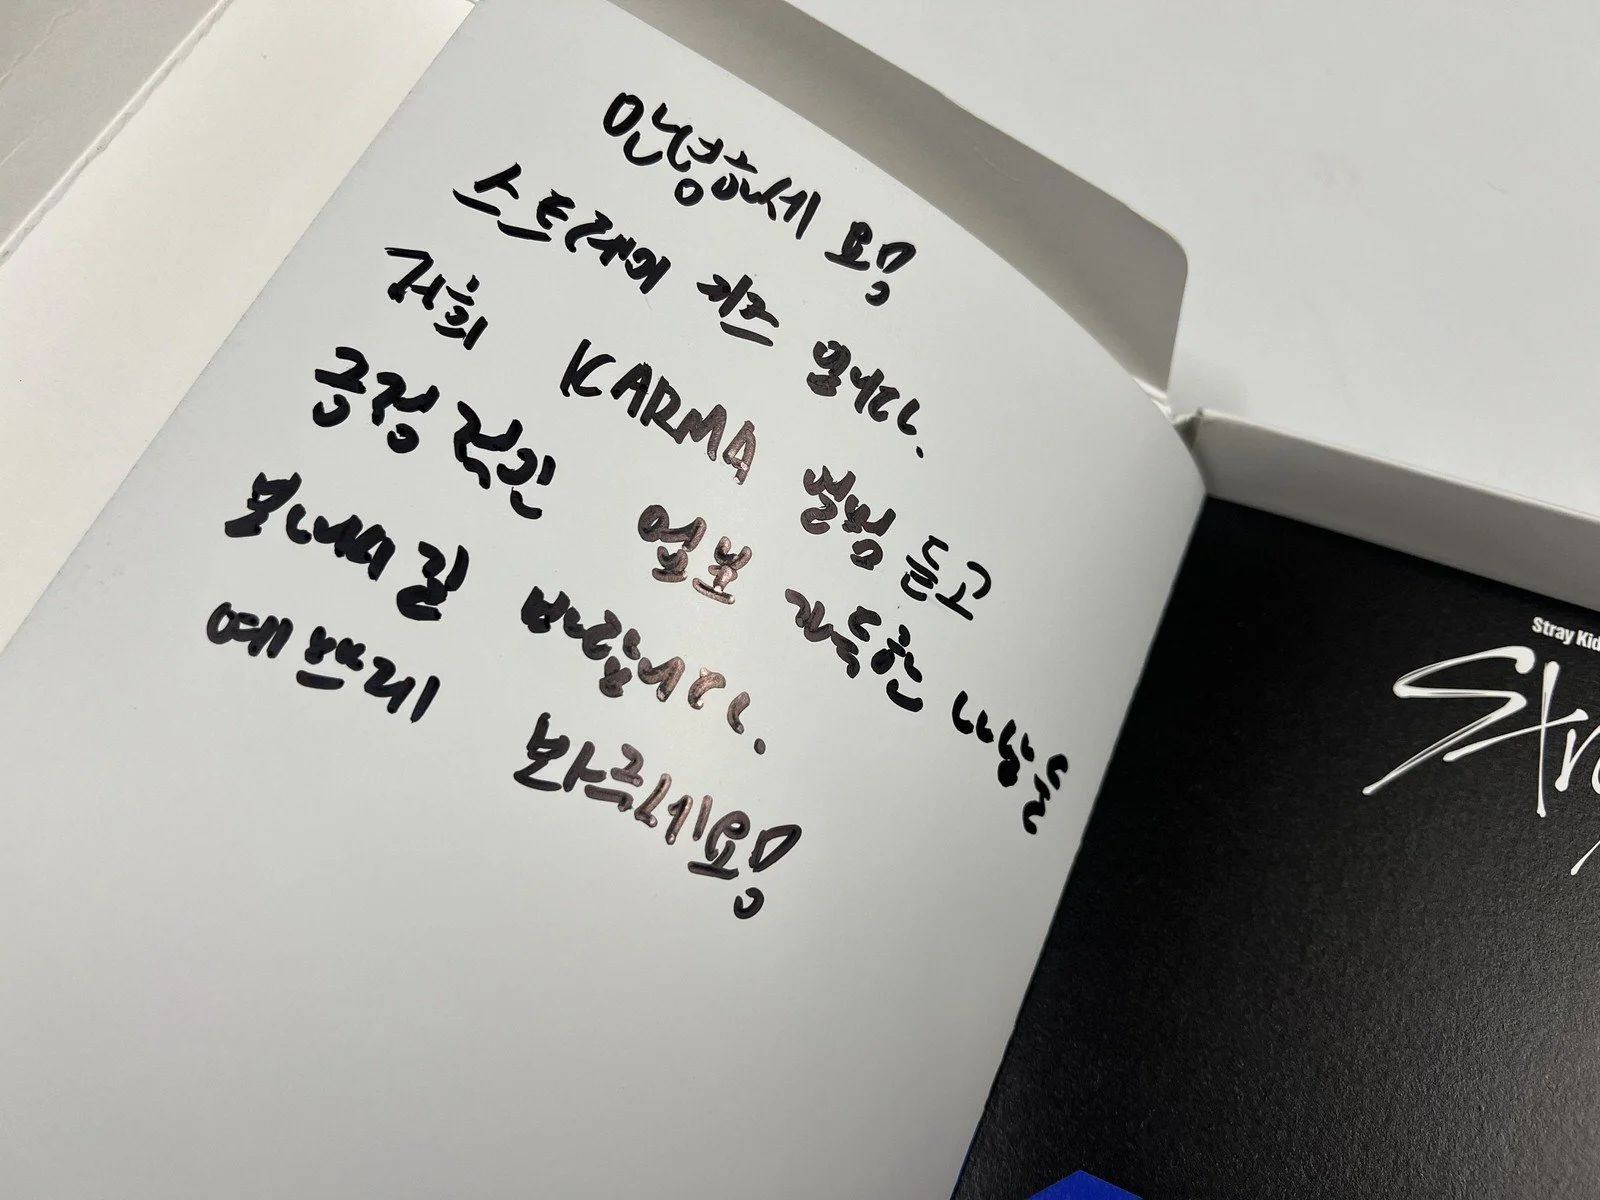 안녕하세요
스트레이 키즈 입니다.
저희 KARMA 앨범 듣고
긍정적인 가득한 나날들
보내시길 바랍니다.
예쁘게 봐주세용
Stray Kid
Str